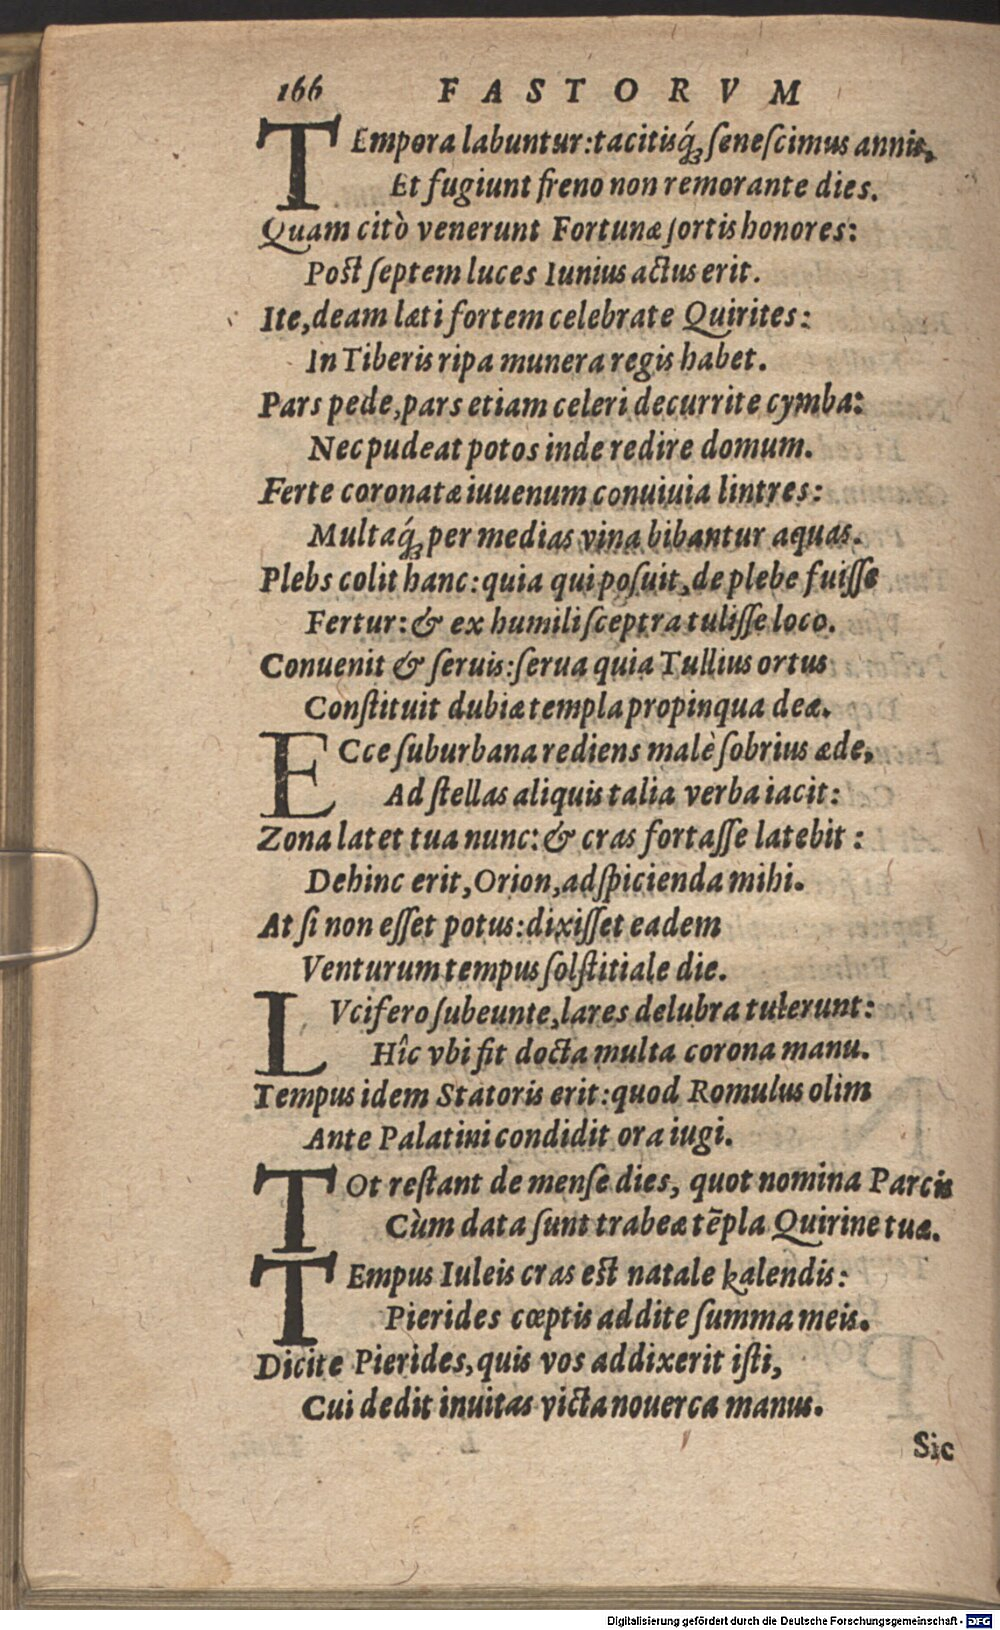 166 FASTORVM
TEmpora labuntur: tacitisq́ꝫ ſeneſcimus annis,
Et fugiunt freno non remorante dies.
Quam citò venerunt Fortunæ ſortis honores:
Poſt ſeptem luces Iunius actus erit.
Ite, deam læti fortem celebrate Quirites:
In Tiberis ripa munera regis habet.
Pars pede, pars etiam celeri decurrite cymba:
Nec pudeat potos inde redire domum.
Ferte coronatæ iuuenum conuiuia lintres:
Multaq́ꝫ per medias vina bibantur aquas.
Plebs colit hanc: quia qui poſuit, de plebe fuiſſe
Fertur: & ex humili ſceptra tuliſſe loco.
Conuenit & ſeruis: ſerua quia Tullius ortus
Conſtituit dubiæ templa propinqua deæ.
ECce ſuburbana rediens malè ſobrius æde,
Ad ſtellas aliquis talia verba iacit:
Zona latet tua nunc: & cras fortaſſe latebit:
Dehinc erit, Orion, adſpicienda mihi.
At ſi non eſſet potus: dixiſſet eadem
Venturum tempus ſolſtitiale die.
LVcifero ſubeunte, lares delubra tulerunt:
Hîc vbi fit docta multa corona manu.
Tempus idem Statoris erit: quod Romulus olim
Ante Palatini condidit ora iugi.
TOt reſtant de menſe dies, quot nomina Parcis
Cùm data ſunt trabeæ tẽpla Quirine tuæ.
TEmpus Iuleis cras eſt natale kalendis:
Pierides cœptis addite ſumma meis.
Dicite Pierides, quis vos addixerit iſti,
Cui dedit inuitas victa nouerca manus.
Sic
Digitalisierung gefördert durch die Deutsche Forschungsgemeinschaft - DFG